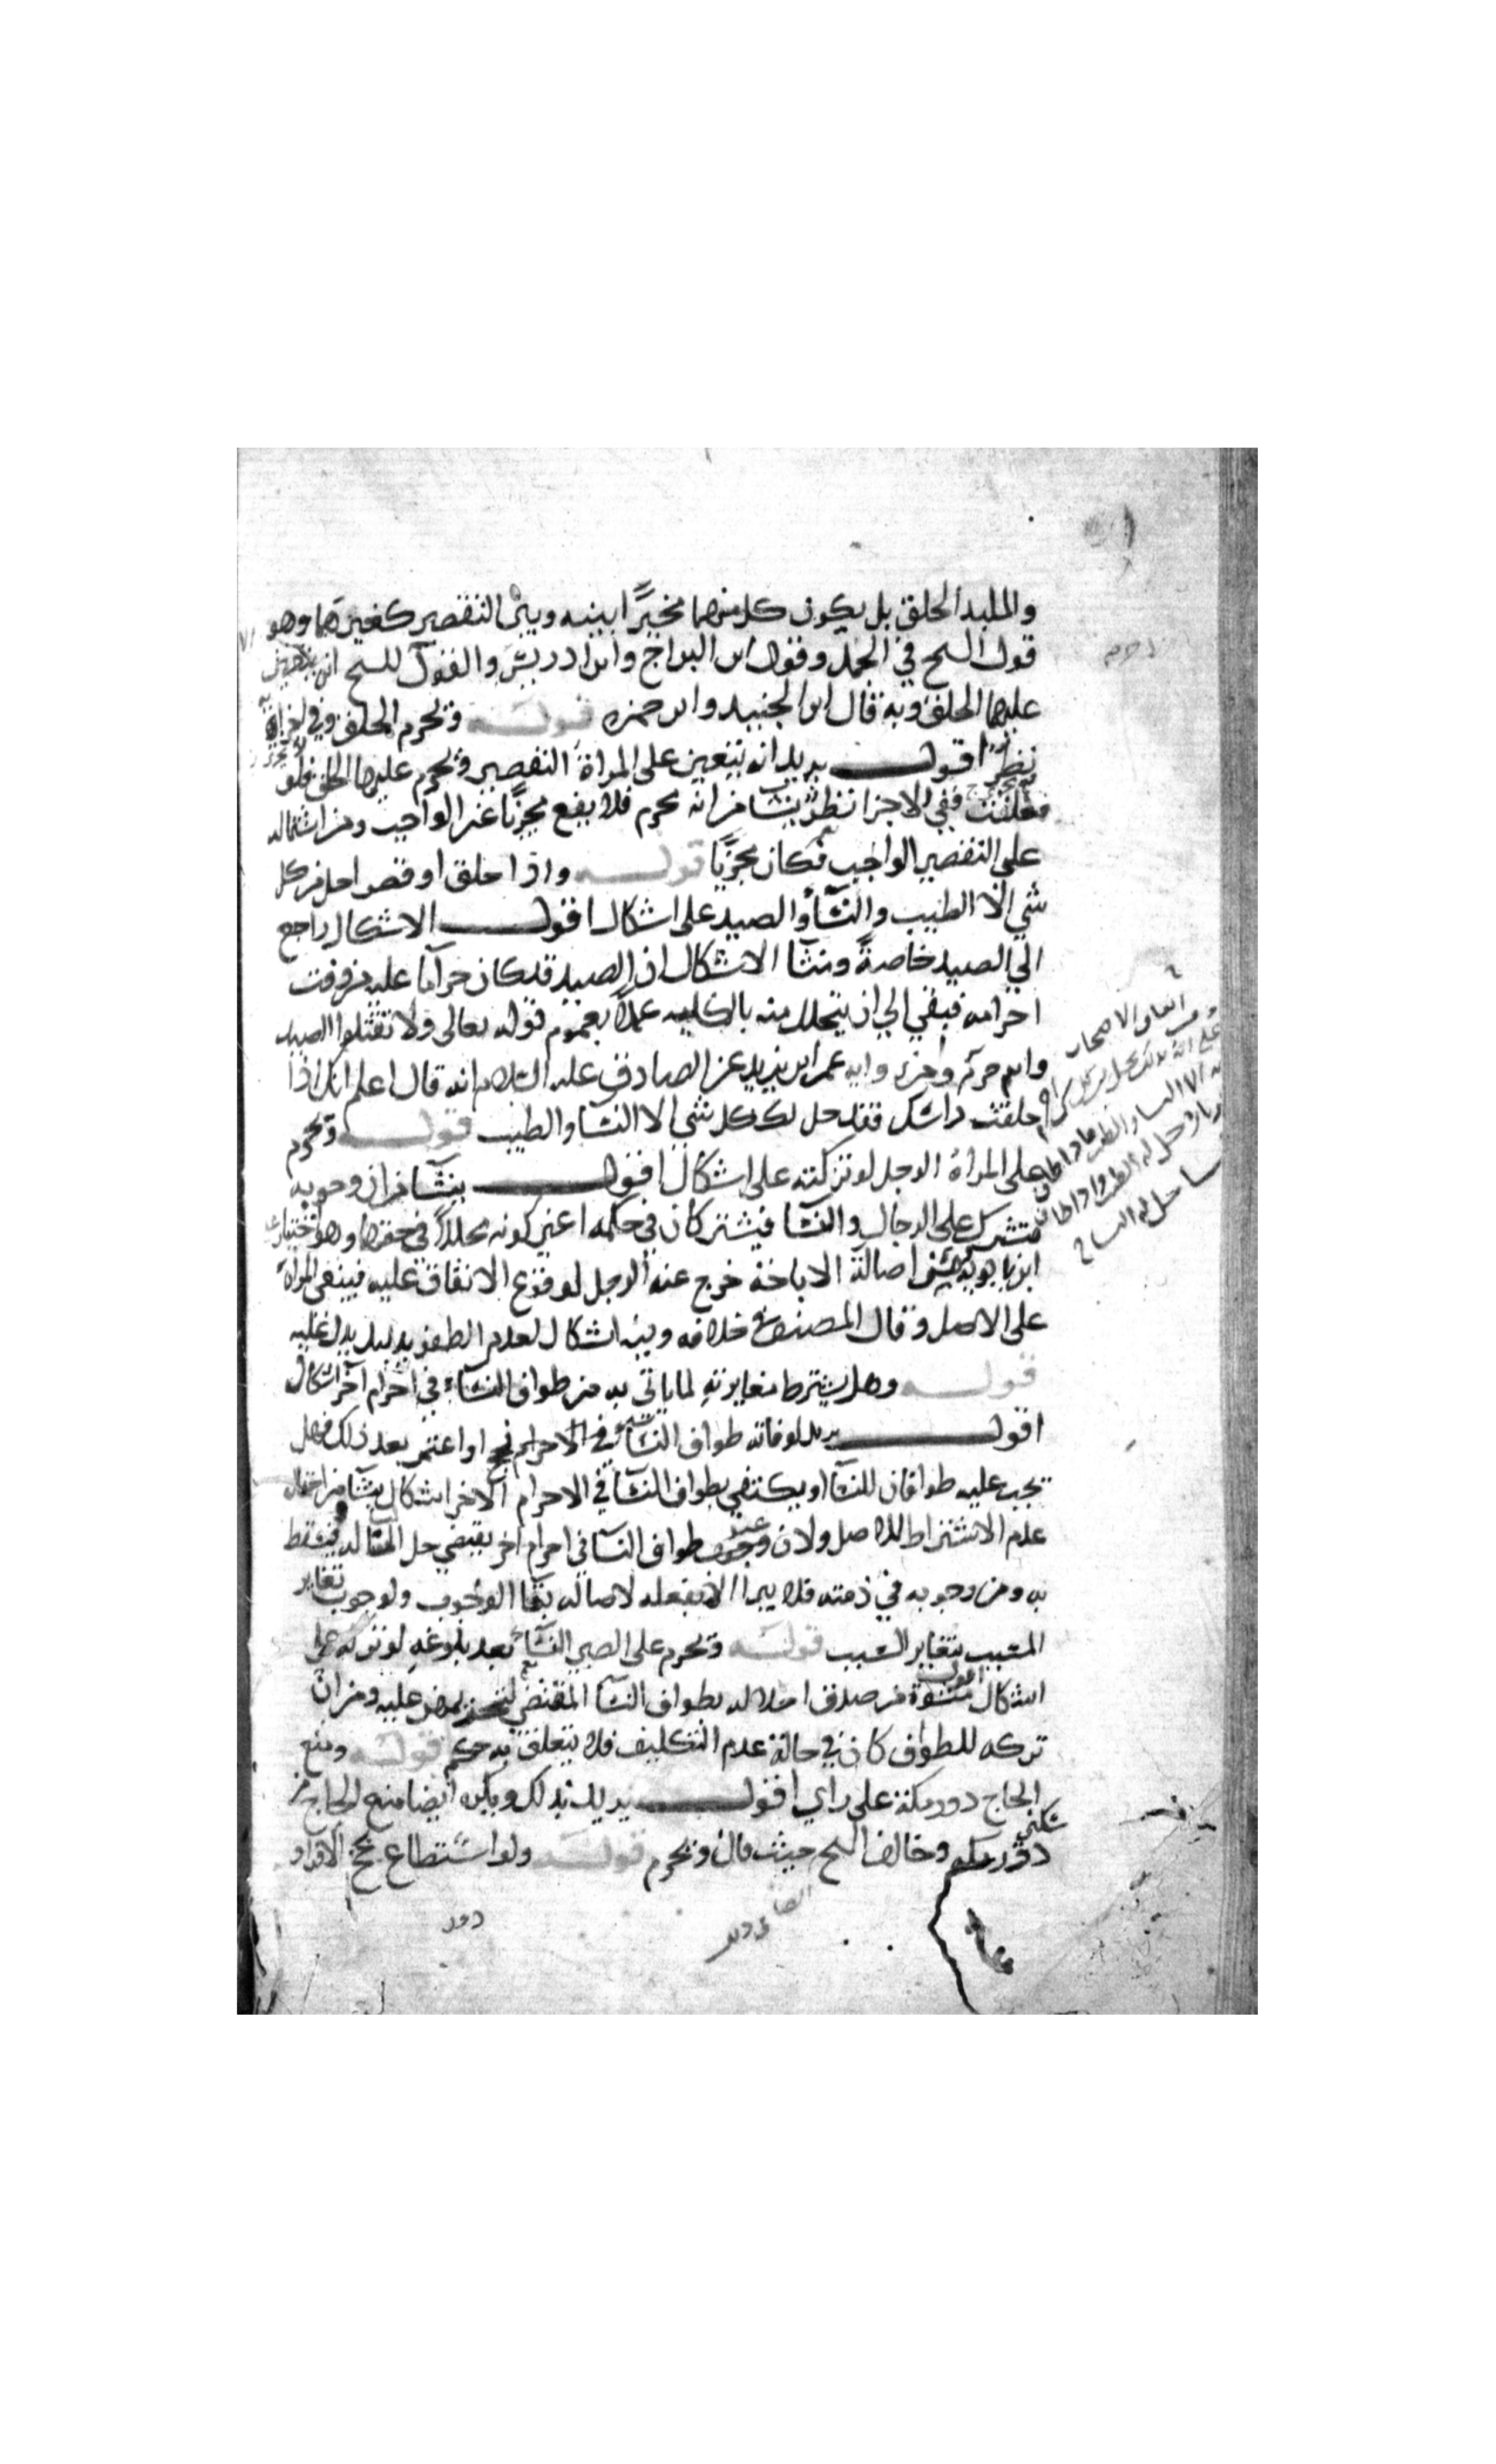 والملبد الحلق بل يكون كل منهما مخيرًا بينه وبين التقصير كغيرهما وهو
قول الشيخ في الجمل وقول ابن البراج وابن ادريس والقول للشيخ انه يتعين
عليهما الحلق وبه قال ابن الجنيد وابن حمزه قوله ويحرم الحلق وفي اجزائه
نظر اقول يريد انه يتعين على المراة التقصير ويحرم عليها الحلق فلو
حلقت ففي الاجزا نظر ينشا من انه محرم فلا يقع مجزيًا عن الواجب ومن اشتماله
على التقصير الواجب فكان مجزيًا قوله واذا حلق او قصر احل من كل
شي الا الطيب والنسا والصيد على اشكال اقول الاشكال راجع
الي الصيد خاصةً ومنشا الاشكال ان الصيد قد كان حراما عليه من وقت
احرامه فيبقي الي ان يتحلل منه بالكليه عملًا بعموم قوله تعالى ولا تقتلوا الصيد
وانتم حرم ومن رواية عمر ابن يزيد عن الصادق عليه السلام انه قال اعلم انك اذا
حلقت راسك فقد حل لك كل شي الا النسا والطيب قوله ويحرم
على المراة الرجل لو تركته على اشكال اقول ينشا من ان وجوبه
مشترك على الرجال والنسا فيشتركان في حكمه اعني كونه محللًا في حقهما وهو اختيار
ابن بابويه ومن اصالة الاباحة خرج عنه الرجل لوقوع الاتفاق عليه فيبقى المراة
على الاصل وقال المصنف في خلافه وفيه اشكال لعدم الظفر بدليل يدل عليه
قوله وهل يشترط مغايرته لما ياتي به من طواف النساء في احرام اخر اشكال
اقول يريد لو فاته طواف النسا في الاحرام بحج او اعتمر بعد ذلك فهل
يجب عليه طوافان للنسا او يكتفي بطواف النسا في الاحرام الاخر اشكال ينشا من احتمال
عدم الاشتراط للاصل ولان وجوب طواف النسا في احرام اخر يقتضي حل النسا له فيسقط
به ومن وجوبه في ذمته فلا يبرا الا بفعله لاصاله بقا الوجوب ولوجوب تغاير
المسبب بتغاير السبب قوله ويحرم على الصبي النسا بعد بلوغه لو تركه على
اشكال اقول منشوه من صدق اخلاله بطواف النسا المقتضي لتحريمهن عليه ومن ان
تركه للطواف كان في حالة عدم التكليف فلا يتعلق به حكم قوله ومنع
الحاج دور مكة على راي اقول يريد بذلك ويكره ايضا منع الحاج من
سكنى
دور مكه وخالف الشيخ حيث قال ويحرم قوله ولو استطاع بحج الافراد